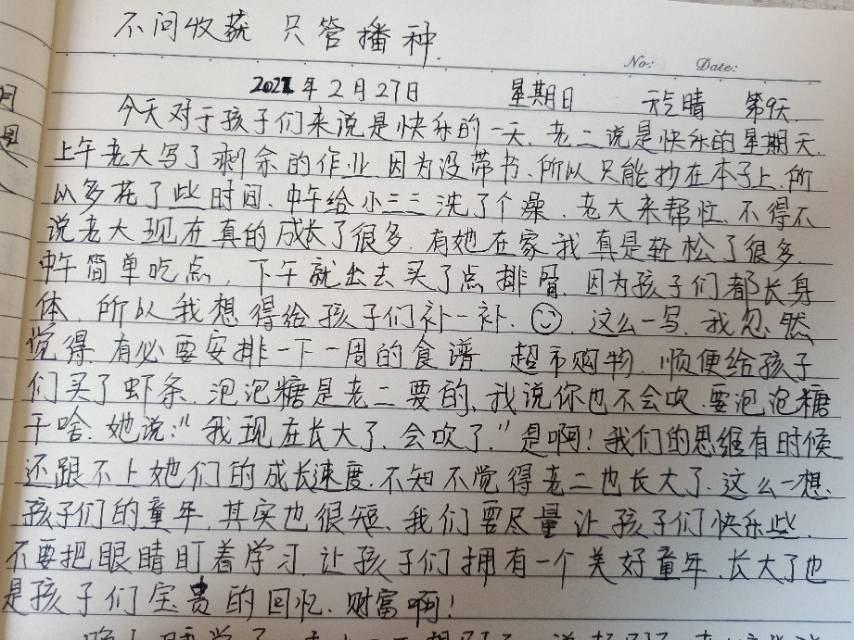 不问收获 只管播种.
No: Date:
2022年2月27日 星期日 天气晴 第9天.
今天对于孩子们来说是快乐的一天. 老二说是快乐的星期天.
上午老大写了剩余的作业.因为没带书.所以只能抄在本子上.所
以多花了些时间.中午给小三三洗了个澡.老大来帮忙.不得不
说老大现在真的成长了很多.有她在家我真是轻松了很多.
中午简单吃点.下午就出去买了点排骨.因为孩子们都长身
体.所以我想得给孩子们补一补.☺.这么一写.我忽然
觉得有必要安排一下一周的食谱.超市购物.顺便给孩子
们买了虾条.泡泡糖是老二要的.我说你也不会吹.要泡泡糖
干啥.她说:"我现在长大了.会吹了."是啊!我们的思维有时候
还跟不上她们的成长速度.不知不觉得老二也长大了.这么一想.
孩子们的童年.其实也很短.我们要尽量让孩子们快乐些.
不要把眼睛盯着学习.让孩子们拥有一个美好童年.长大了也
是孩子们宝贵的回忆.财富啊!